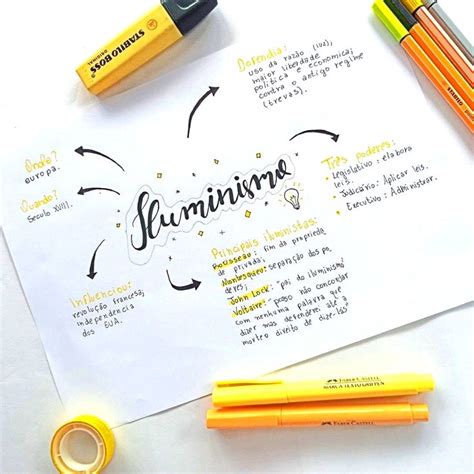 STABILO BOSS
ORIGINAL
Defendia:
uso da razão (luz),
maior liberdade
política e econômica;
contra o antigo regime
(trevas).
Onde?
europa.
Quando?
Século XVIII.
Iluminismo
Três poderes:
Legislativo: elabora
leis.
Judiciário: Aplicar leis.
Executivo: Administrar.
Influenciou:
revolução francesa,
independência
dos EUA.
Principais iluministas:
Rousseau: fim da proprieda
de privada;
Montesqueu: separação dos po
deres;
John Lock: pai do iluminismo
Voltaire: "posso não concordar
com nenhuma palavra que
dizer mas defenderei até a
morte o direito de dizê-las
FABER-CASTELL
FABER-CASTELL